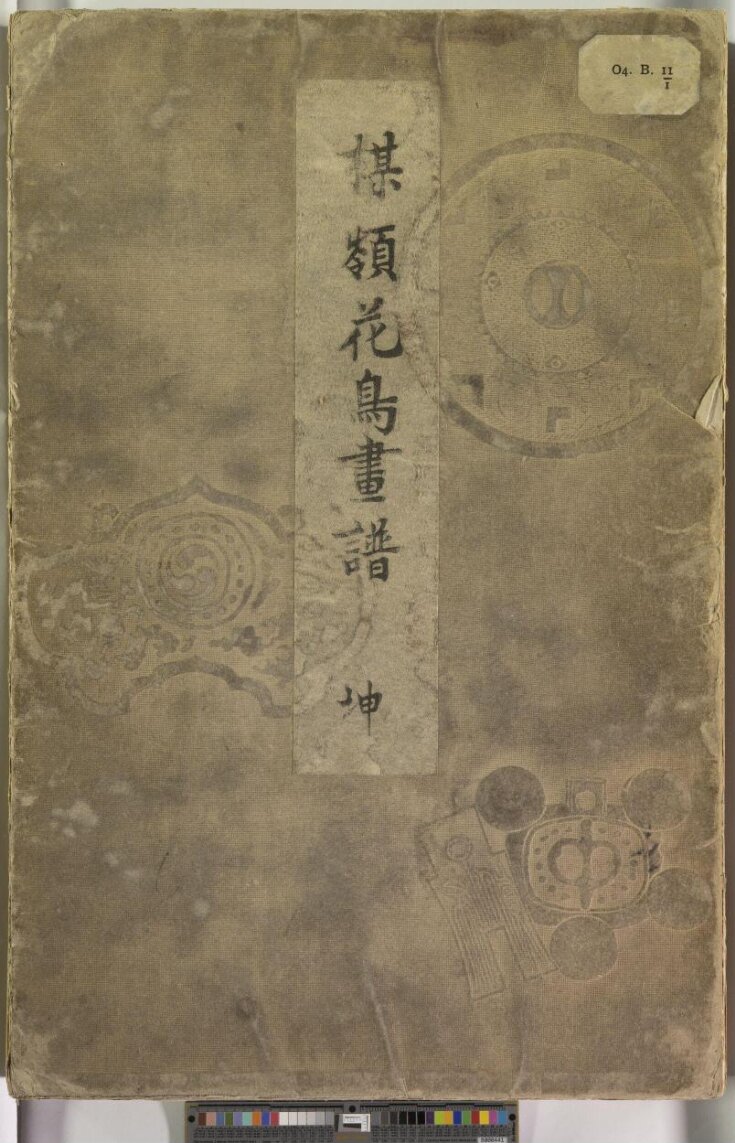 O4. B. 11
1
楳嶺花鳥畫譜 坤